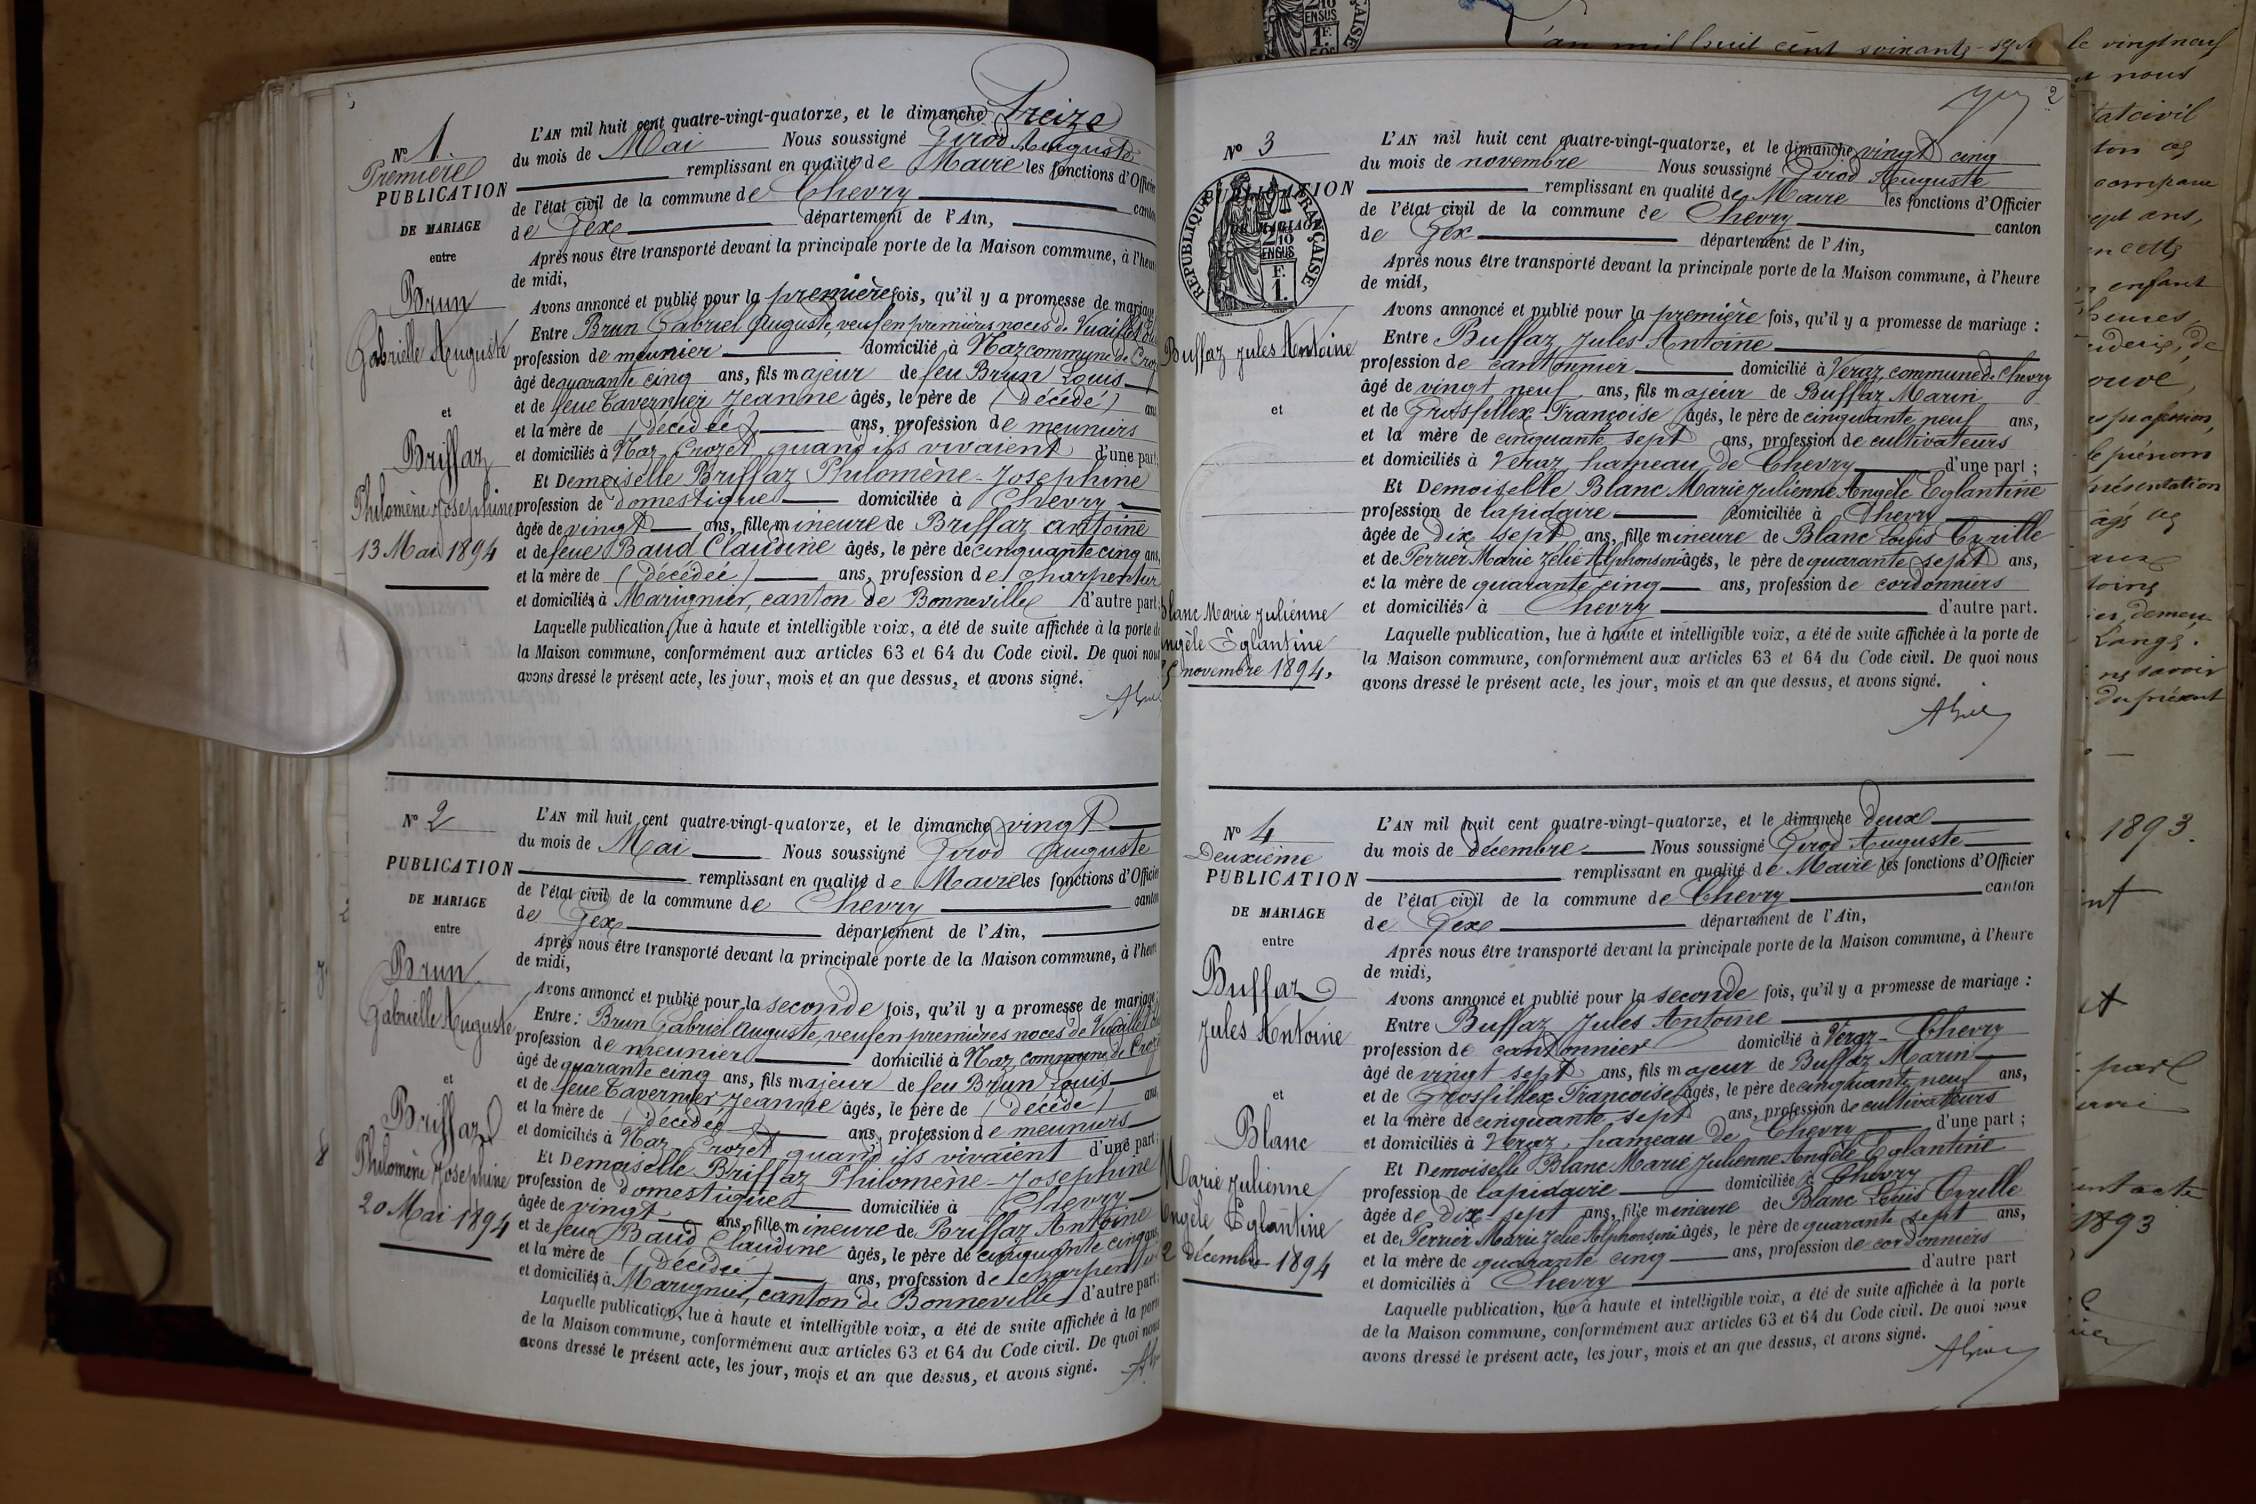 N° 1.
Première
PUBLICATION
DE MARIAGE
entre
Brun
Gabrielle Auguste
et
Briffaz
Philomène Josephine
13 Mai 1894
L'AN mil huit cent quatre-vingt-quatorze, et le dimanche Treize
du mois de Mai Nous soussigné Girod Auguste
remplissant en qualité de Maire les fonctions d'Officier
de l'état civil de la commune de Chevry canton
de Gex département de l'Ain,
Après nous être transporté devant la principale porte de la Maison commune, à l'heure
de midi,
Avons annoncé et publié pour la première fois, qu'il y a promesse de mariage
Entre Brun Gabriel Auguste, veuf en premières noces de
profession de meunier domicilié à Naz commune de Croz
âgé de quarante cinq ans, fils majeur de feu Brun Louis
et de feue Tavernier Jeanne âgés, le père de (décédé) ans
et la mère de (décédée) ans, profession de meuniers
et domiciliés à Naz Crozet quand ils vivaient d'une part;
Et Demoiselle Briffaz Philomène-Josephine
profession de domestique domiciliée à Chevry
âgée de vingt ans, fille mineure de Briffaz Antoine
et de feue Baud Claudine âgés, le père de cinquante cinq ans,
et la mère de (décédée) ans, profession de charpentier
et domiciliés à Marignier, canton de Bonneville d'autre part;
Laquelle publication, lue à haute et intelligible voix, a été de suite affichée à la porte de
la Maison commune, conformément aux articles 63 et 64 du Code civil. De quoi nous
avons dressé le présent acte, les jour, mois et an que dessus, et avons signé.
N° 2
PUBLICATION
DE MARIAGE
entre
Brun
Gabrielle Auguste
et
Briffaz
Philomène Josephine
20 Mai 1894
L'AN mil huit cent quatre-vingt-quatorze, et le dimanche vingt
du mois de Mai Nous soussigné Girod Auguste
remplissant en qualité de Maire les fonctions d'Officier
de l'état civil de la commune de Chevry canton
de Gex département de l'Ain,
Après nous être transporté devant la principale porte de la Maison commune, à l'heure
de midi,
Avons annoncé et publié pour la seconde fois, qu'il y a promesse de mariage
Entre : Brun Gabriel Auguste, veuf en premières noces de
profession de meunier domicilié à Naz, commune de Croz
âgé de quarante cinq ans, fils majeur de feu Brun Louis
et de feue Tavernier Jeanne âgés, le père de (décédé) ans
et la mère de (décédée) ans, profession de meuniers
et domiciliés à Naz Crozet quand ils vivaient d'une part;
Et Demoiselle Briffaz Philomène-Josephine
profession de domestique domiciliée à Chevry
âgée de vingt ans, fille mineure de Briffaz Antoine
et de feue Baud Claudine âgés, le père de cinquante cinq ans,
et la mère de (décédée) ans, profession de charpentier
et domiciliés à Marignier, canton de Bonneville d'autre part;
Laquelle publication, lue à haute et intelligible voix, a été de suite affichée à la porte
de la Maison commune, conformément aux articles 63 et 64 du Code civil. De quoi nous
avons dressé le présent acte, les jour, mois et an que dessus, et avons signé.
2
N° 3
PUBLICATION
DE MARIAGE
RÉPUBLIQUE FRANÇAISE
2/10
EN SUS
F.
1.
Buffaz Jules Antoine
et
Blanc Marie Julienne
Angèle Eglantine
25 novembre 1894.
L'AN mil huit cent quatre-vingt-quatorze, et le dimanche vingt cinq
du mois de novembre Nous soussigné Girod Auguste
remplissant en qualité de Maire les fonctions d'Officier
de l'état civil de la commune de Chevry canton
de Gex département de l'Ain,
Après nous être transporté devant la principale porte de la Maison commune, à l'heure
de midi,
Avons annoncé et publié pour la première fois, qu'il y a promesse de mariage :
Entre Buffaz Jules Antoine
profession de cantonnier domicilié à Veraz, commune de Chevry
âgé de vingt neuf ans, fils majeur de Buffaz Marin
et de Grosfillex Françoise âgés, le père de cinquante neuf ans,
et la mère de cinquante sept ans, profession de cultivateurs
et domiciliés à Veraz hameau de Chevry d'une part ;
Et Demoiselle Blanc Marie Julienne Angèle Eglantine
profession de lapidaire domiciliée à Chevry
âgée de dix sept ans, fille mineure de Blanc Louis Cyrille
et de Perrier Marie Zélie Alphonsine âgés, le père de quarante sept ans,
et la mère de quarante cinq ans, profession de cordonniers
et domiciliés à Chevry d'autre part.
Laquelle publication, lue à haute et intelligible voix, a été de suite affichée à la porte de
la Maison commune, conformément aux articles 63 et 64 du Code civil. De quoi nous
avons dressé le présent acte, les jour, mois et an que dessus, et avons signé.
N° 4
Deuxième
PUBLICATION
DE MARIAGE
entre
Buffaz
Jules Antoine
et
Blanc
Marie Julienne
Angèle Eglantine
2 décembre 1894
L'AN mil huit cent quatre-vingt-quatorze, et le dimanche deux
du mois de décembre Nous soussigné Girod Auguste
remplissant en qualité de Maire les fonctions d'Officier
de l'état civil de la commune de Chevry canton
de Gex département de l'Ain,
Après nous être transporté devant la principale porte de la Maison commune, à l'heure
de midi,
Avons annoncé et publié pour la seconde fois, qu'il y a promesse de mariage :
Entre Buffaz Jules Antoine
profession de cantonnier domicilié à Veraz-Chevry
âgé de vingt sept ans, fils majeur de Buffaz Marin
et de Grosfillex Françoise âgés, le père de cinquante neuf ans,
et la mère de cinquante sept ans, profession de cultivateurs
et domiciliés à Veraz, hameau de Chevry d'une part ;
Et Demoiselle Blanc Marie Julienne Angèle Eglantine
profession de lapidaire domiciliée à Chevry
âgée de Dix-sept ans, fille mineure de Blanc Louis Cyrille
et de Perrier Marie Zelie Alphonsine âgés, le père de quarante sept ans,
et la mère de quarante cinq ans, profession de cordonniers
et domiciliés à Chevry d'autre part
Laquelle publication, lue à haute et intelligible voix, a été de suite affichée à la porte
de la Maison commune, conformément aux articles 63 et 64 du Code civil. De quoi nous
avons dressé le présent acte, les jour, mois et an que dessus, et avons signé.
L'an mil huit cent soixante-sept le vingt neuf
nous
compare
ans,
en cette
enfant
heures,
profession,
le prénom
présentation
savoir
du présent
1893.
1893